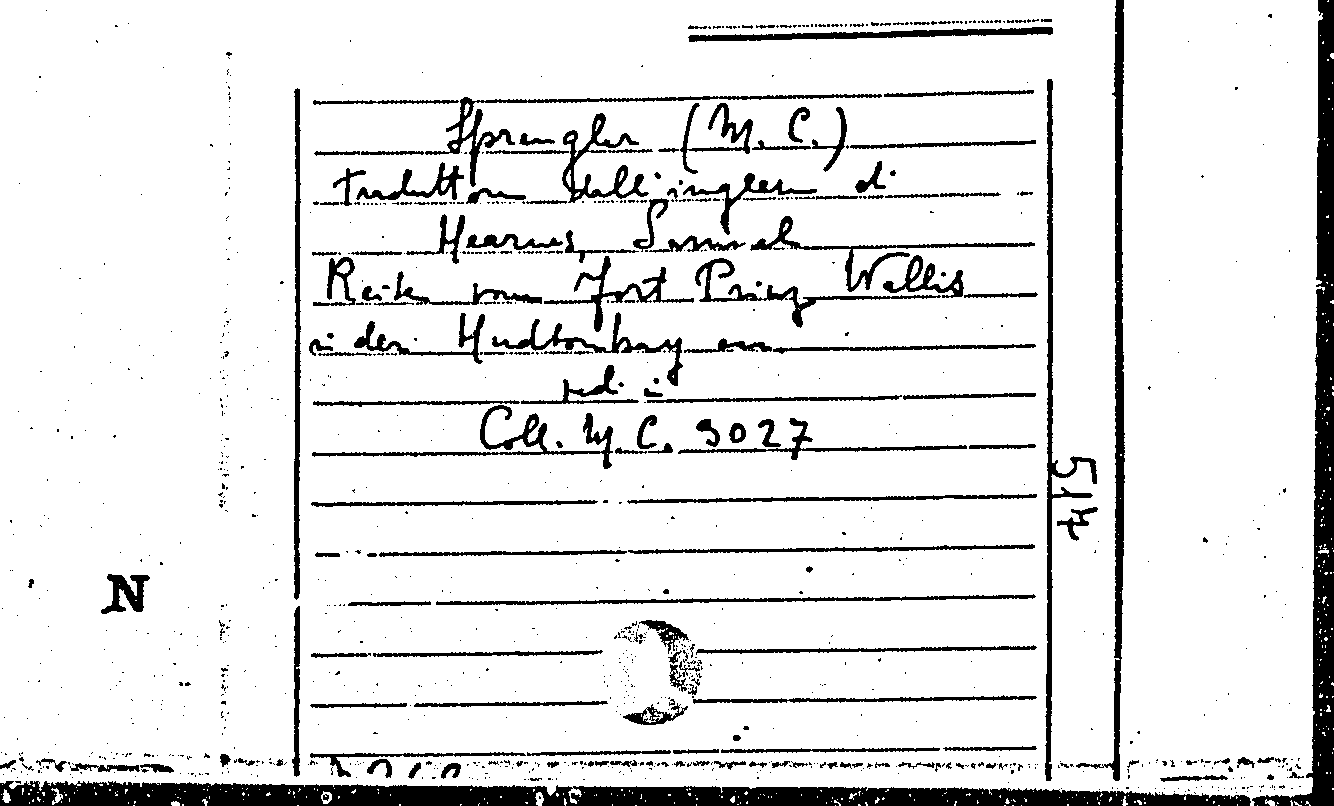 Sprengler (M. C.)
traduttore dall'inglese di
Hearnes, Samuel
Reise vom Fort Prinz Wallis
in der Hudsonbay an
vedi in
Coll. M. C. 3027
514
N